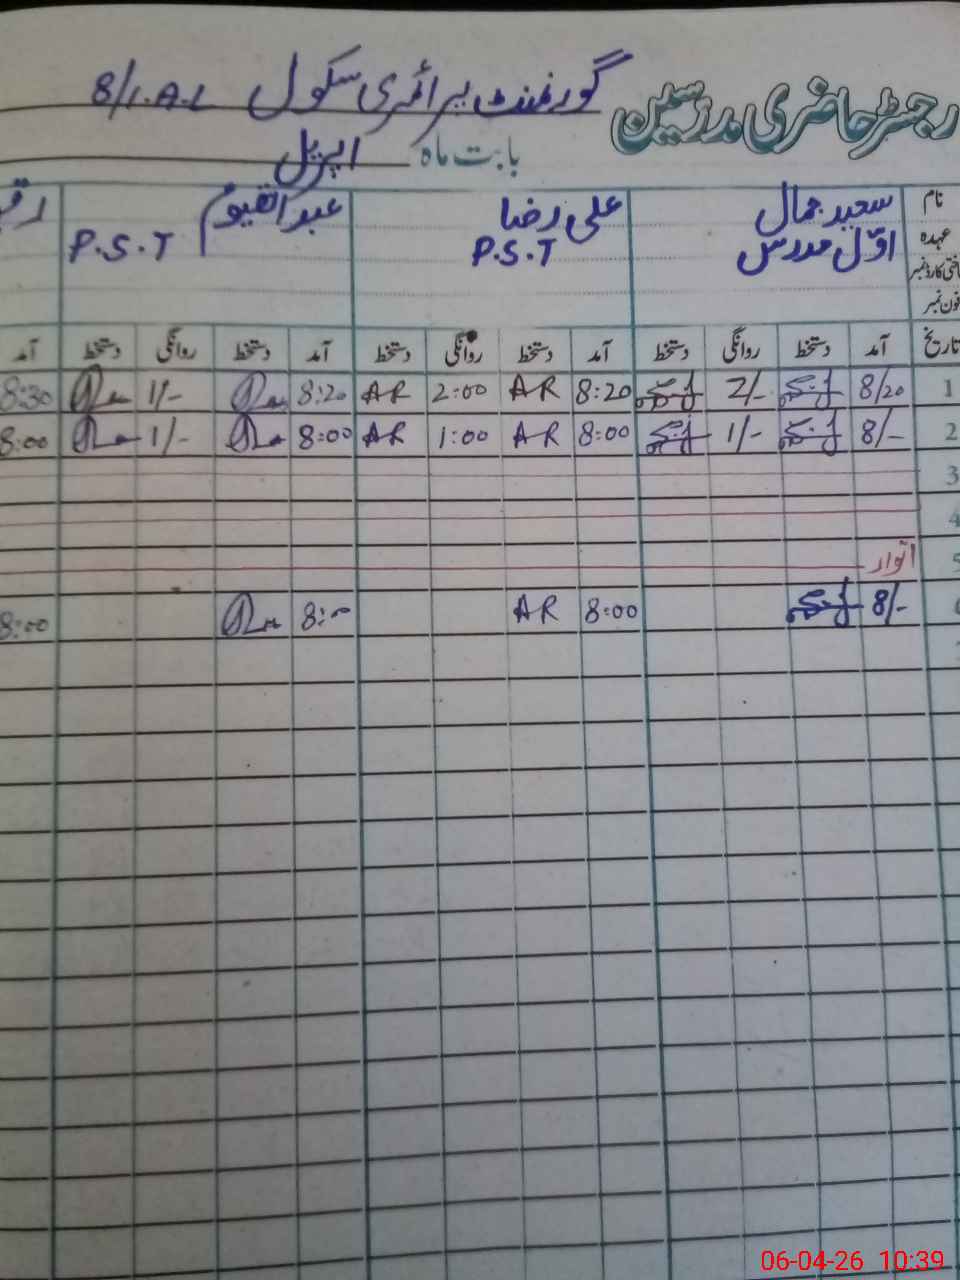 رجسٹر حاضری مدرسین گورنمنٹ پرائمری سکول 8/1.A.L
بابت ماہ اپریل
نام سعید جمال علی رضا عبدالقیوم
عہدہ اوّل مدرس P.S.T P.S.T
فون نمبر
تاریخ آمد دستخط روانگی دستخط آمد دستخط روانگی دستخط آمد دستخط روانگی دستخط آمد
1 8/20 2/- 8:20 AR 2:00 AR 8:20 1/- 8:30
2 8/- 1/- 8:00 AR 1:00 AR 8:00 1/- 8:00
3
4
5 اتوار
6 8/- 8:00 AR 8:00 8:00
06-04-26 10:39